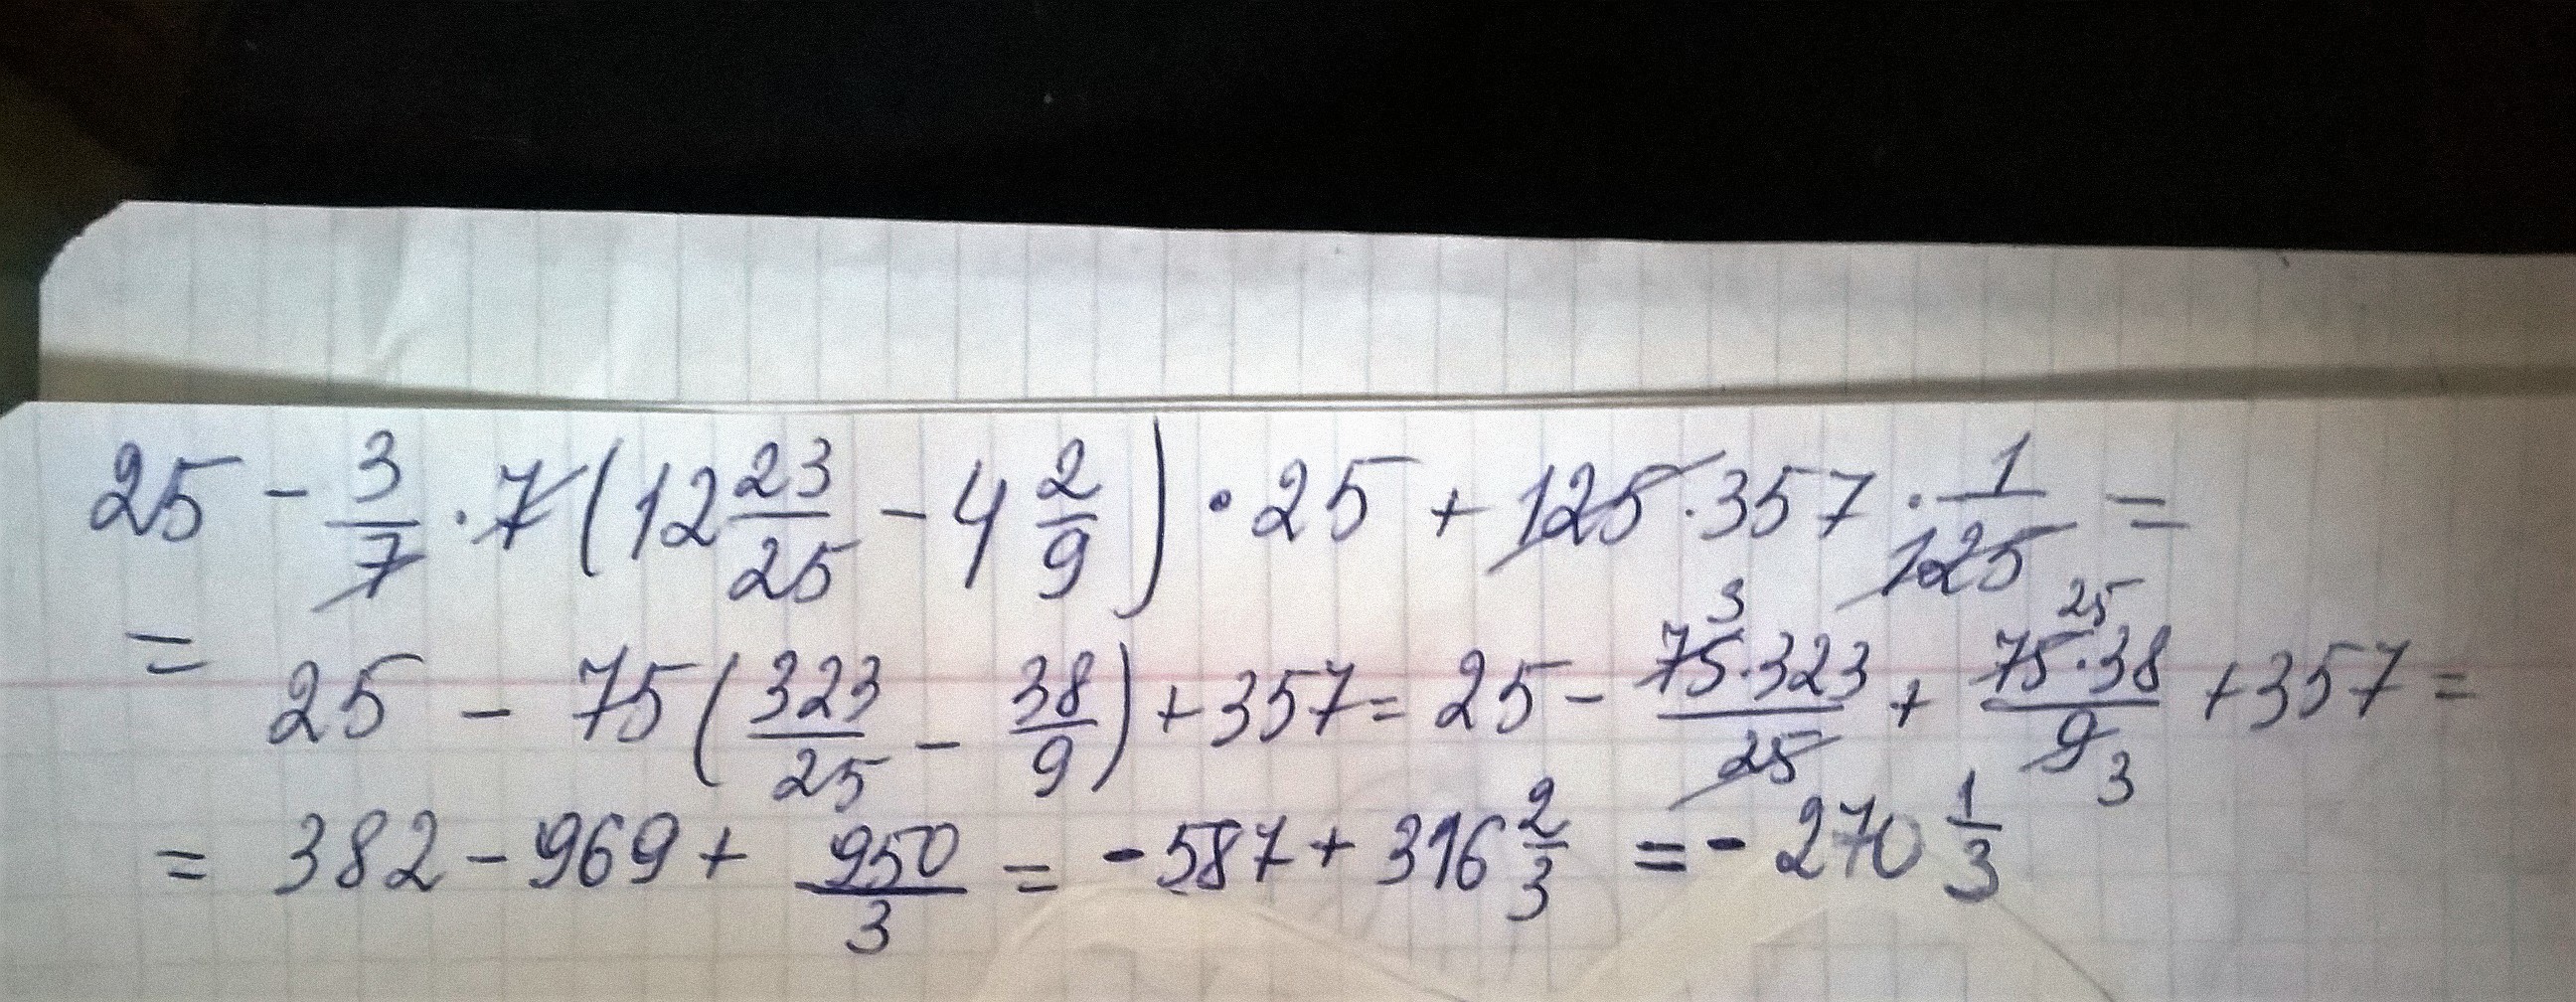 25 - 3/7 · 7(12 23/25 - 4 2/9) · 25 + 125 · 357 · 1/125 =
= 25 - 75(323/25 - 38/9) + 357 = 25 - 75 3 · 323/25 + 75 25 · 38/9 3 + 357 =
= 382 - 969 + 950/3 = - 587 + 316 2/3 = - 270 1/3